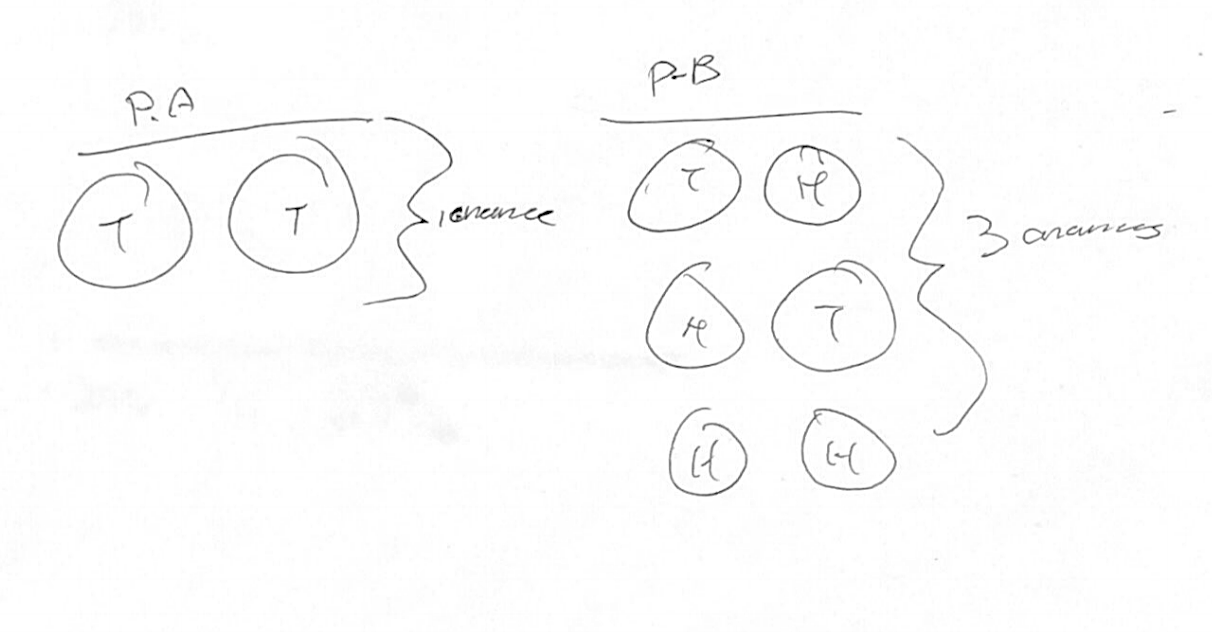 P.A
P-B
T T
1 chance
T H
H T
H H
3 chances